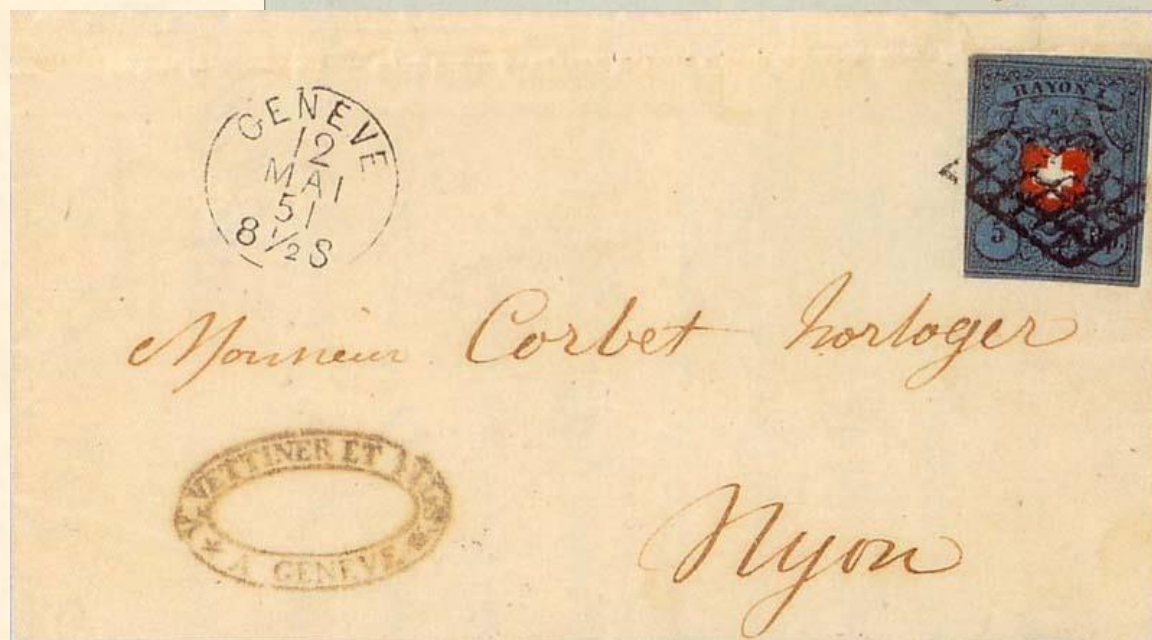 GENEVE
12
MAI
51
8 ½ S
RAYON I
5 Rp.
Monsieur Corbet horloger
VETTINER ET FILS
A GENEVE
Nyon